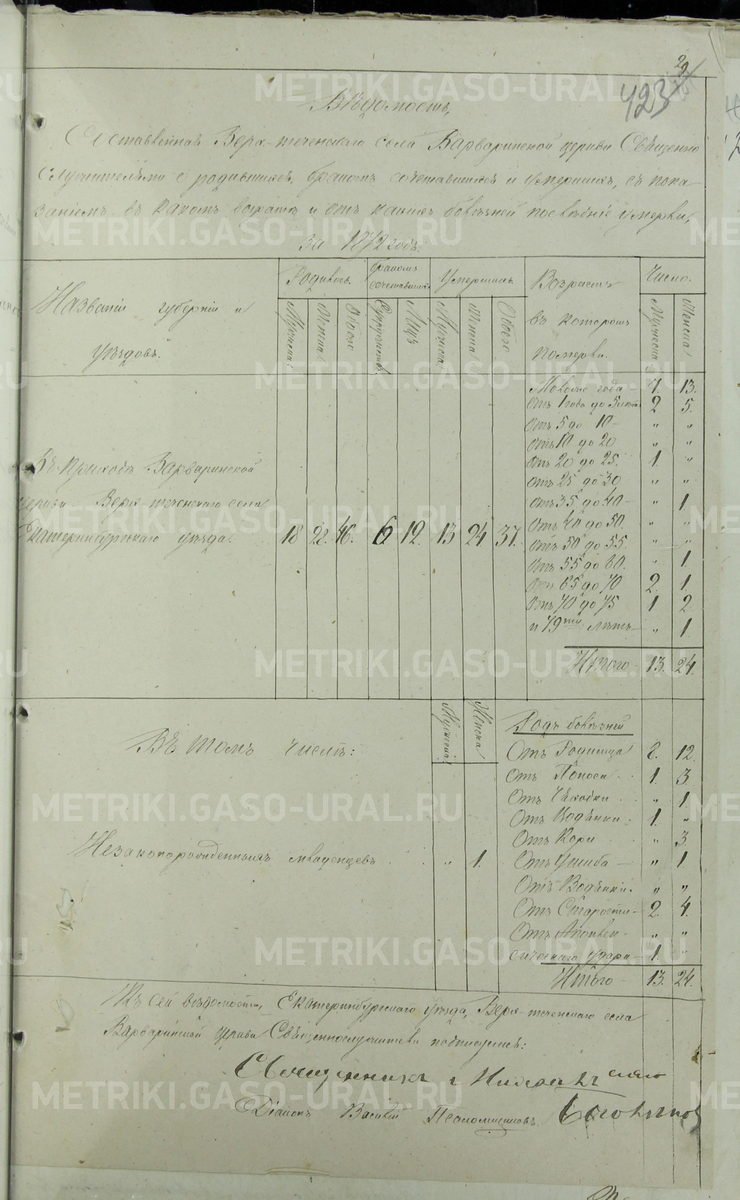 29
423
METRIKI.GASO-URAL.RU
Вѣдомость,
Составленная Верх-теченскаго села Варваринской церкви Священно
служителями о родившихся, бракомъ сочетавшихся и умершихъ, съ пока-
заніемъ въ какомъ возрастѣ и отъ какихъ болѣзней послѣдніе умерли,
за 1872 годъ.
Названіи губерніи и уѣздовъ.
Родилось
Мужеска
Женска
Обоего
Бракомъ сочетавшихся
Супружествъ
Лицъ
Умершихъ
Мужеска
Женска
Обоего
Возрастъ въ которомъ померли.
Число.
Мужеска
Женска
Въ приходѣ Варваринской
церкви Верх-теченскаго села
Екатеринбургскаго уѣзда. 18 22 46. 6 12. 13 24 37.
До года 13.
Отъ 1 года до 5 лѣтъ 2 5.
Отъ 5 до 10 " "
Отъ 10 до 20 " "
Отъ 20 до 25. 1 "
Отъ 25 до 30 " "
Отъ 35 до 40 " 1
Отъ 40 до 50. " "
Отъ 50 до 55. " "
Отъ 55 до 60. " 1
Отъ 65 до 70 2 1
Отъ 70 до 75 1 2
и 79 лѣтъ " 1
Итого 13. 24.
Въ томъ числѣ:
Мужеска
Женска
Незаконорожденныхъ младенцевъ " 1.
Родъ болѣзней
Отъ Родимца 8. 12.
Отъ Поноса 1. 3
Отъ Чахотки " 1.
Отъ Водянки 1. "
Отъ Кори " 3.
Отъ Ушиба " 1
Отъ Водянки " "
Отъ Старости 2. 4.
Отъ
удара 1. "
Итого 13. 24.
Къ сей вѣдомости, Екатеринбургскаго уѣзда, Верх-теченскаго села
Варваринской церкви Священнослужители подписались:
Священникъ
Діаконъ Василій